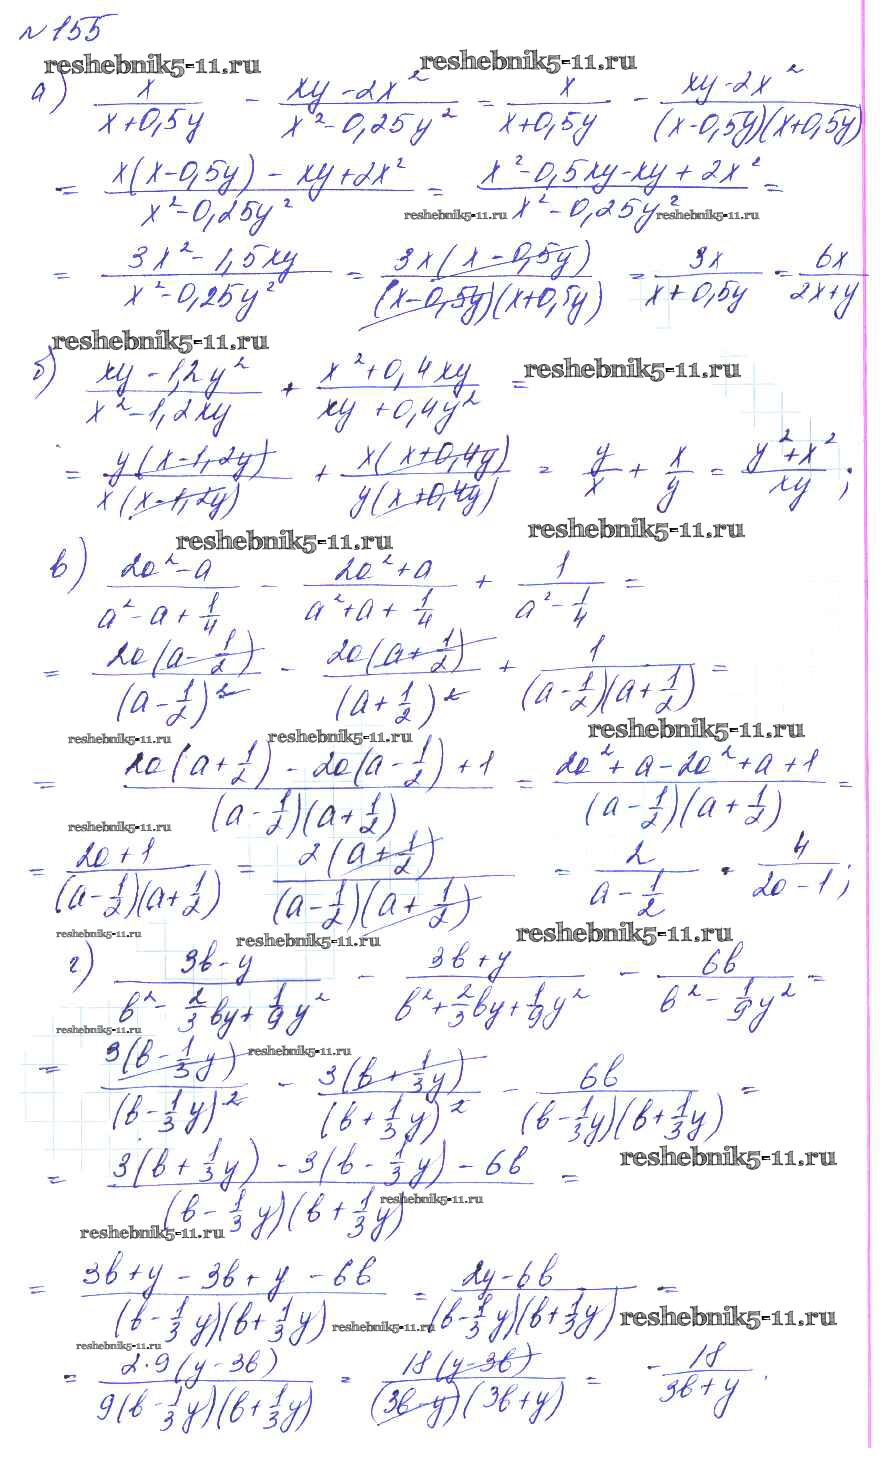 №155
reshebnik5-11.ru reshebnik5-11.ru
а) x/(x+0,5y) - (xy-2x²)/(x²-0,25y²) = x/(x+0,5y) - (xy-2x²)/((x-0,5y)(x+0,5y))
= (x(x-0,5y)-xy+2x²)/(x²-0,25y²) = (x²-0,5xy-xy+2x²)/(x²-0,25y²) =
reshebnik5-11.ru reshebnik5-11.ru
= (3x²-1,5xy)/(x²-0,25y²) = (3x(x-0,5y))/((x-0,5y)(x+0,5y)) = 3x/(x+0,5y) = 6x/(2x+y)
reshebnik5-11.ru
б) (xy-1,2y²)/(x²-1,2xy) + (x²+0,4xy)/(xy+0,4y²) = reshebnik5-11.ru
= (y(x-1,2y))/(x(x-1,2y)) + (x(x+0,4y))/(y(x+0,4y)) = y/x + x/y = (y²+x²)/(xy);
reshebnik5-11.ru reshebnik5-11.ru
в) (2a²-a)/(a²-a+1/4) - (2a²+a)/(a²+a+1/4) + 1/(a²-1/4) =
= (2a(a-1/2))/(a-1/2)² - (2a(a+1/2))/(a+1/2)² + 1/((a-1/2)(a+1/2)) =
reshebnik5-11.ru reshebnik5-11.ru reshebnik5-11.ru
= (2a(a+1/2)-2a(a-1/2)+1)/((a-1/2)(a+1/2)) = (2a²+a-2a²+a+1)/((a-1/2)(a+1/2)) =
reshebnik5-11.ru
= (2a+1)/((a-1/2)(a+1/2)) = (2(a+1/2))/((a-1/2)(a+1/2)) = 2/(a-1/2) = 4/(2a-1);
reshebnik5-11.ru reshebnik5-11.ru reshebnik5-11.ru
г) (3b-y)/(b²-2/3by+1/9y²) - (3b+y)/(b²+2/3by+1/9y²) - 6b/(b²-1/9y²) =
reshebnik5-11.ru reshebnik5-11.ru
= (3(b-1/3y))/(b-1/3y)² - (3(b+1/3y))/(b+1/3y)² - 6b/((b-1/3y)(b+1/3y)) =
= (3(b+1/3y)-3(b-1/3y)-6b)/((b-1/3y)(b+1/3y)) = reshebnik5-11.ru
reshebnik5-11.ru reshebnik5-11.ru
= (3b+y-3b+y-6b)/((b-1/3y)(b+1/3y)) = (2y-6b)/((b-1/3y)(b+1/3y)) =
reshebnik5-11.ru reshebnik5-11.ru reshebnik5-11.ru
= (2·9(y-3b))/(9(b-1/3y)(b+1/3y)) = (18(y-3b))/((3b-y)(3b+y)) = -18/(3b+y).